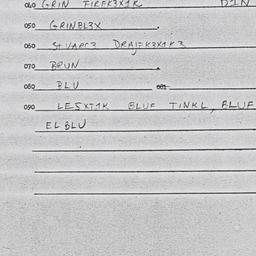 040 GRIN FIRFK3X1K DIN
050 GRINBL3X
060 STVARC3 DRAJFK3X1K3
070 BRUN
080 BLU
090 LE5XT1K BLUF TINKL, BLUF
EL BLU